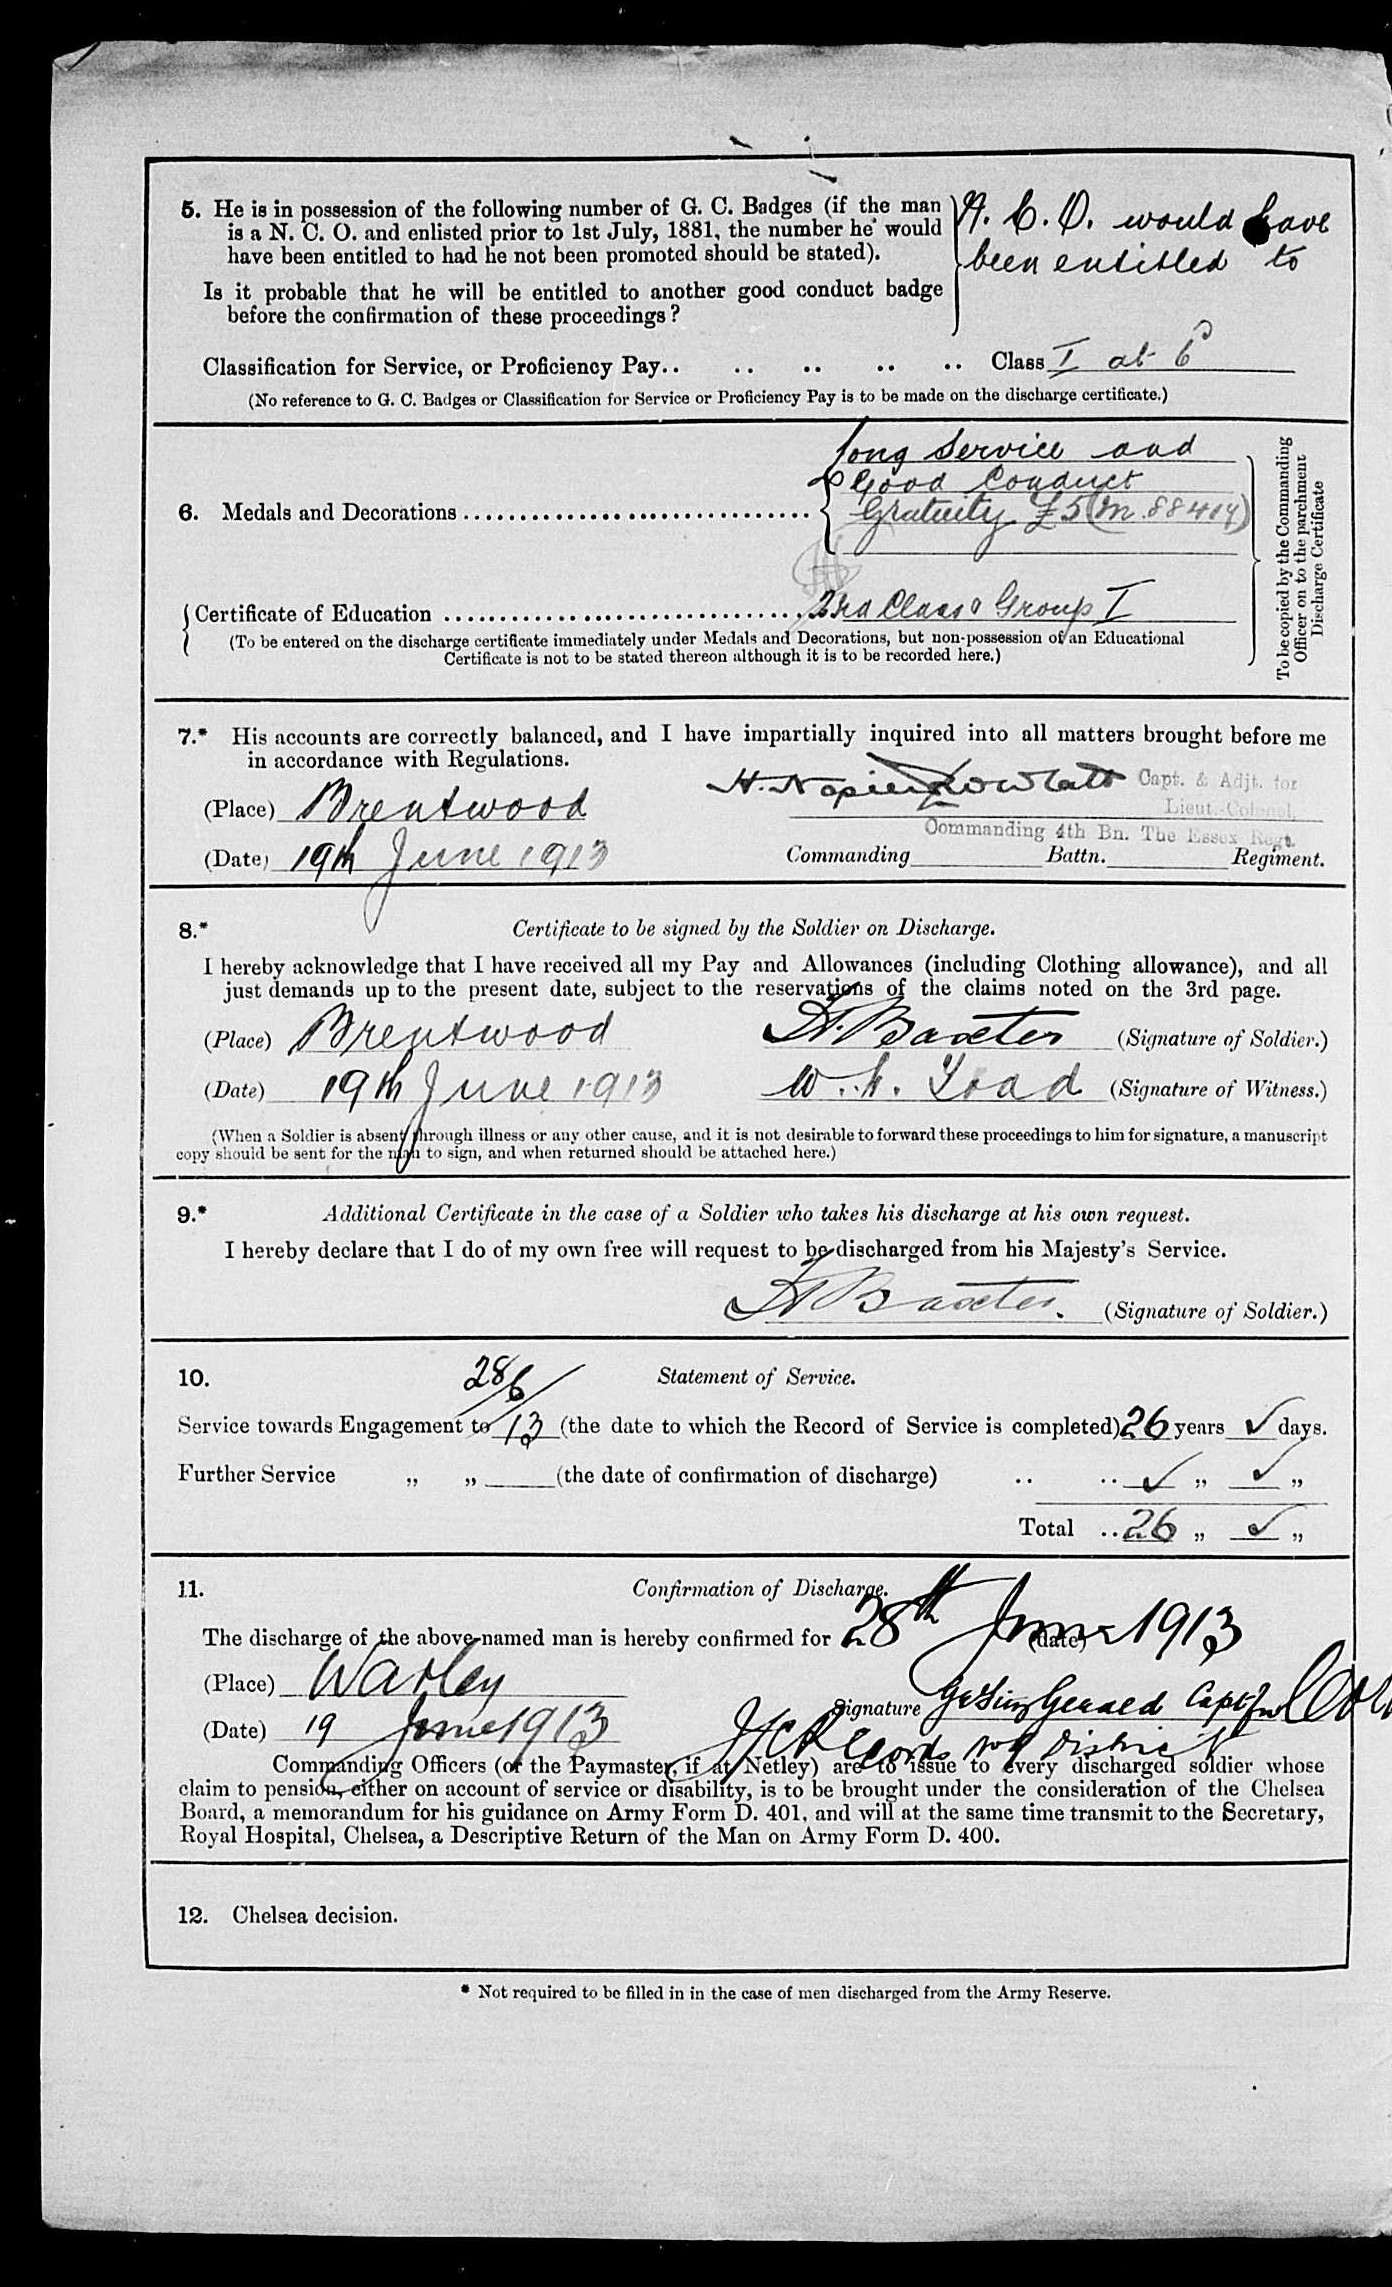 5. He is in possession of the following number of G. C. Badges (if the man
is a N. C. O. and enlisted prior to 1st July, 1881, the number he would
have been entitled to had he not been promoted should be stated).
N. C. O. would have
been entitled to
Is it probable that he will be entitled to another good conduct badge
before the confirmation of these proceedings?
Classification for Service, or Proficiency Pay.. .. .. .. .. Class I at 6d
(No reference to G. C. Badges or Classification for Service or Proficiency Pay is to be made on the discharge certificate.)
Long Service and
Good Conduct
6. Medals and Decorations Gratuity £5
To be copied by the Commanding
Officer on to the parchment
Discharge Certificate
Certificate of Education Class Group I
(To be entered on the discharge certificate immediately under Medals and Decorations, but non-possession of an Educational
Certificate is not to be stated thereon although it is to be recorded here.)
7.* His accounts are correctly balanced, and I have impartially inquired into all matters brought before me
in accordance with Regulations.
H. Napier Rowlatt Capt. & Adjt. for
(Place) Brentwood Lieut.-Colonel,
Commanding 4th Bn. The Essex Regt.
(Date) 19th June 1913 Commanding Battn. Regiment.
8.* Certificate to be signed by the Soldier on Discharge.
I hereby acknowledge that I have received all my Pay and Allowances (including Clothing allowance), and all
just demands up to the present date, subject to the reservations of the claims noted on the 3rd page.
(Place) Brentwood H. Baxter (Signature of Soldier.)
(Date) 19th June 1913 W. H. Toad (Signature of Witness.)
(When a Soldier is absent through illness or any other cause, and it is not desirable to forward these proceedings to him for signature, a manuscript
copy should be sent for the man to sign, and when returned should be attached here.)
9.* Additional Certificate in the case of a Soldier who takes his discharge at his own request.
I hereby declare that I do of my own free will request to be discharged from his Majesty's Service.
H Baxter. (Signature of Soldier.)
10. 28/6/ Statement of Service.
Service towards Engagement to 13 (the date to which the Record of Service is completed) 26 years ✓ days.
Further Service „ „ (the date of confirmation of discharge) .. .. ✓ „ ✓ „
Total .. 26 „ ✓ „
11. Confirmation of Discharge.
The discharge of the above-named man is hereby confirmed for 28th June 1913 (date)
(Place) Warley
Signature Gerard Capt for Col
(Date) 19 June 1913 I/C Records No 9 District
Commanding Officers (or the Paymaster, if at Netley) are to issue to every discharged soldier whose
claim to pension, either on account of service or disability, is to be brought under the consideration of the Chelsea
Board, a memorandum for his guidance on Army Form D. 401, and will at the same time transmit to the Secretary,
Royal Hospital, Chelsea, a Descriptive Return of the Man on Army Form D. 400.
12. Chelsea decision.
* Not required to be filled in in the case of men discharged from the Army Reserve.